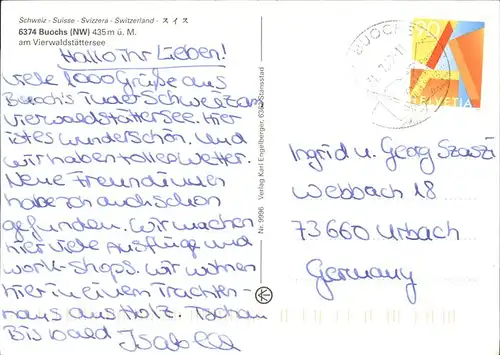 Schweiz · Suisse · Svizzera · Switzerland · スイス
6374 Buochs (NW) 435 m ü. M.
am Vierwaldstättersee
Hallo ihr Lieben!
Viele 1000 Grüße aus
Buochs in der Schweiz am
Vierwaldstättersee. Hier
ist es wunderschön. Und
wir haben tolles Wetter.
Neue Freundinnen
habe ich auch schon
gefunden. Wir machen
hier viele Ausflüge und
work-shops. Wir wohnen
hier in einem Trachten-
haus aus Holz. Tschau
Bis bald Isabella
Nr. 9996 Verlag Karl Engelberger, 6362 Stansstad
BUOCHS
HELVETIA
Ingrid u. Georg Szaszi
Webbach 18
73660 Urbach
Germany